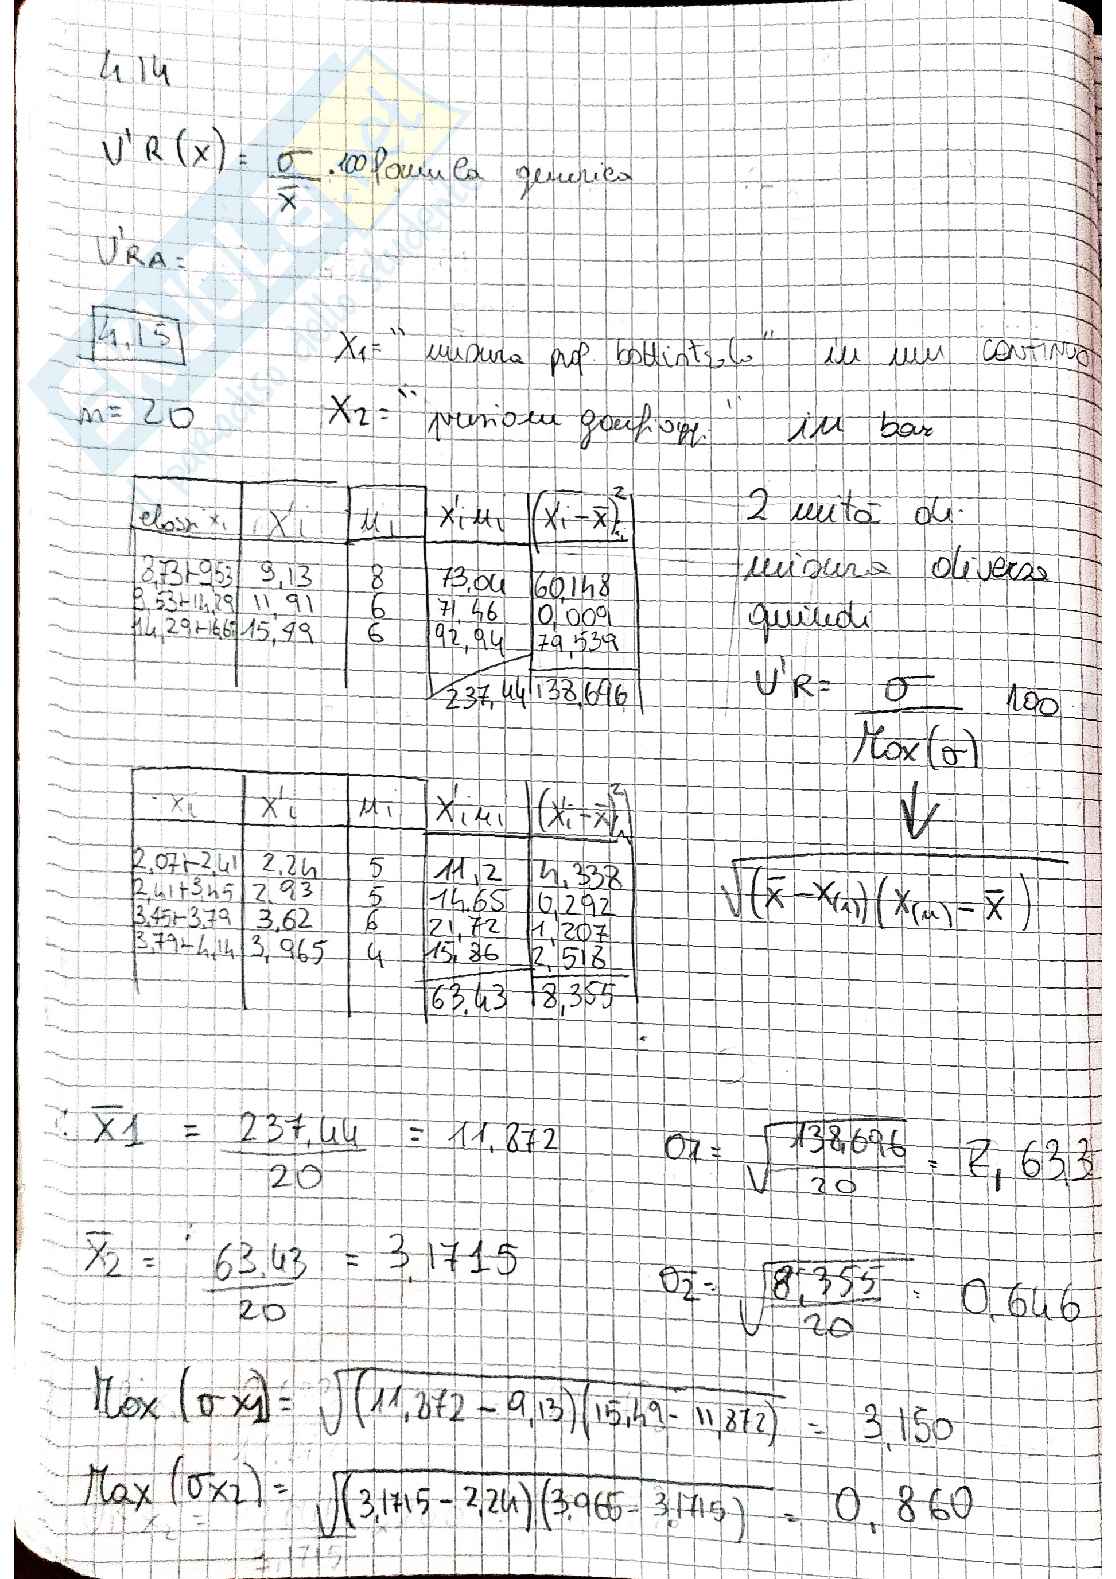 4.14
V'R(x) = σ/x̄ .100 formula generica
V'RA=
4.15
X1= "misura prof. battistrada" in mm CONTINUO
n= 20
X2= "pressione gonfiagg." in bar
classi xi | x'i | ni | x'i ni | (x'i - x̄)² ni
8,73⊢9,53 | 9,13 | 8 | 73,04 | 60,148
9,53⊢14,29 | 11,91 | 6 | 71,46 | 0,009
14,29⊢16,6 | 15,49 | 6 | 92,94 | 79,539
237,44 | 138,696
2 unità di
misura diverse
quindi
V'R = σ/Max(σ) 100
↓
√(x̄ - x(1))(x(n) - x̄)
xi | x'i | ni | x'i ni | (x'i - x̄)² ni
2,07⊢2,41 | 2,24 | 5 | 11,2 | 4,338
2,41⊢3,45 | 2,93 | 5 | 14,65 | 0,292
3,45⊢3,79 | 3,62 | 6 | 21,72 | 1,207
3,79⊢4,14 | 3,965 | 4 | 15,86 | 2,518
63,43 | 8,355
x̄1 = 237,44/20 = 11,872
σ1 = √138,696/20 = 2,633
x̄2 = 63,43/20 = 3,1715
σ2 = √8,355/20 = 0,646
Max (σx1) = √(11,872 - 9,13)(15,49 - 11,872) = 3,150
Max (σx2) = √(3,1715 - 2,24)(3,965 - 3,1715) = 0,860